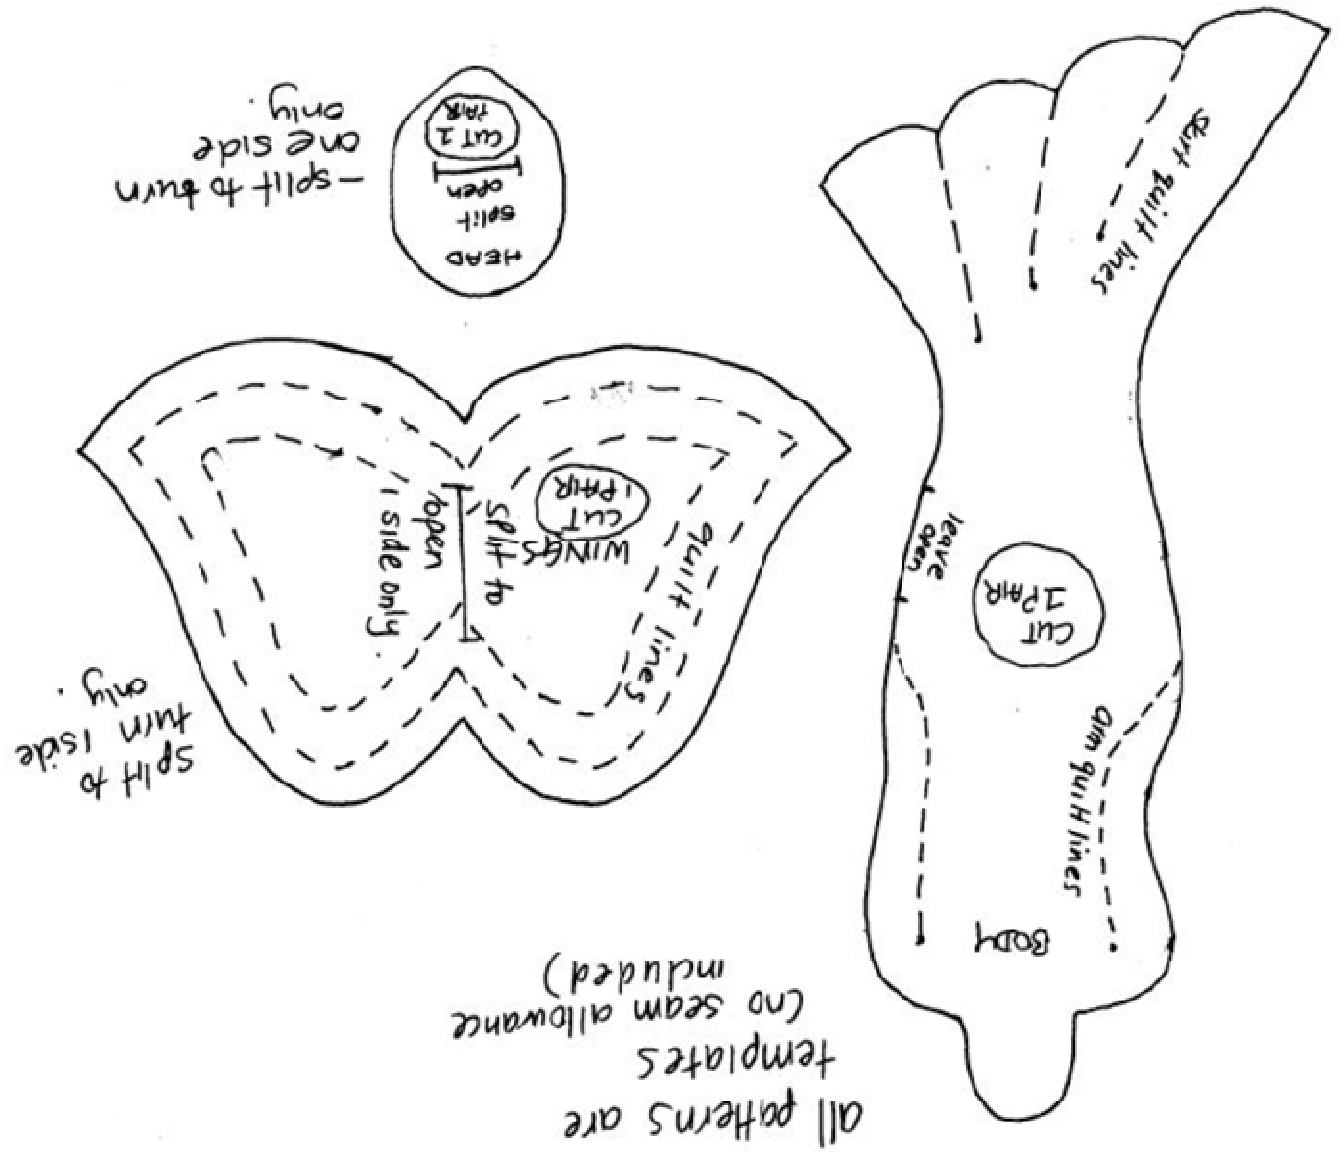 all patterns are
templates
(no seam allowance
included)
BODY
arm quilt lines
CUT
1 PAIR
leave
open
skirt quilt lines
split to
turn 1 side
only.
WINGS
CUT
1 PAIR
quilt lines
split to
open
1 side only.
HEAD
split
open
CUT 1
PAIR
- split to turn
one side
only.